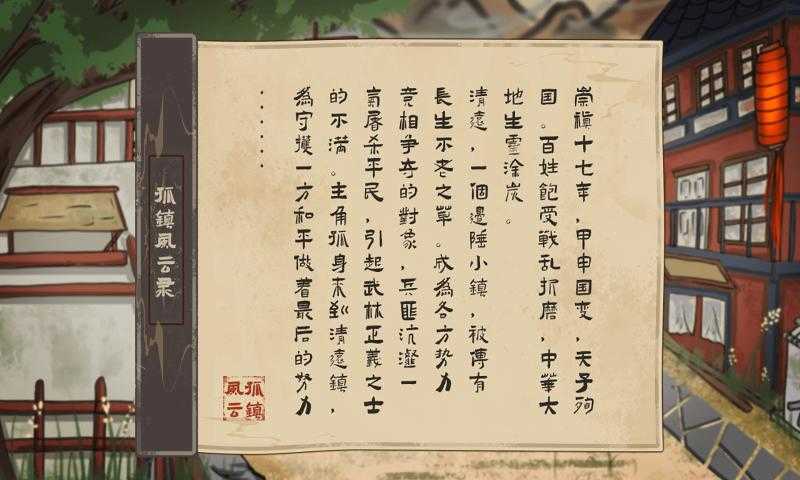 崇禎十七年，甲申国变，天子殉
国。百姓飽受戰乱折磨，中華大
地生靈涂炭。
清遠，一個邊陲小鎮，被傳有
長生不老之草。成為各方势力
竞相争夺的對象，兵匪沆瀣一
氣屠杀平民，引起武林正義之士
的不满。主角孤身来到清遠鎮，
為守護一方和平做着最后的努力
·····
孤鎮風云
孤鎮風云录